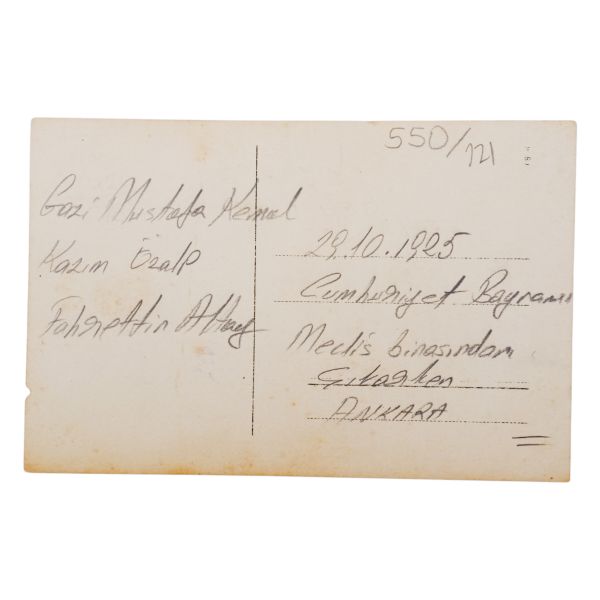 550/121
Gazi Mustafa Kemal
Kazım Özalp
Fahrettin Altay
29.10.1925
Cumhuriyet Bayramı
Meclis binasından
Çıkarken
ANKARA